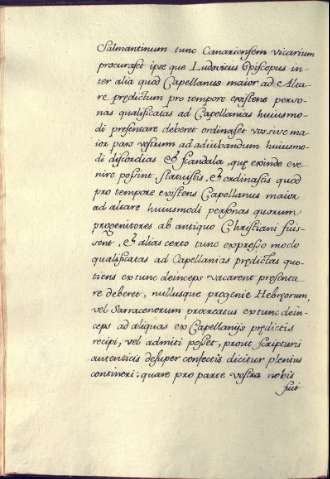 Salmantinum tunc Canariensem vicarium
procurasset ipse que Ludovicus Episcopus in-
ter alia quod Capellanus maior ad Alta-
re prędictum pro tempore existens perso-
nas qualificatas ad Capellanias huiusmo-
di presentare deberet ordinasset vos sive ma-
ior pars vestrum ad adiubandum huiusmo-
di discordias et scandala, quę exinde eve-
nire possint, statuistis, et ordinastis quod
pro tempore existens Capellanus maior
ad altare huiusmodi personas quorum
progenitores ab antiquo Christiani fuis-
sent, et alias certo tunc expresso modo
qualificatas ad Capellanias prędictas quo-
tiens ex tunc deinceps vacarent presenta-
re deberet, nullusque progenie Hebręorum,
vel Sarracenorum procreatus ex tunc dein-
ceps ad aliquas ex Capellanijs prędictis
recipi, vel admitti posset, prout scripturis
autenticis desuper confectis dicitur plenius
contineri; quare pro parte vestra nobis
fuit